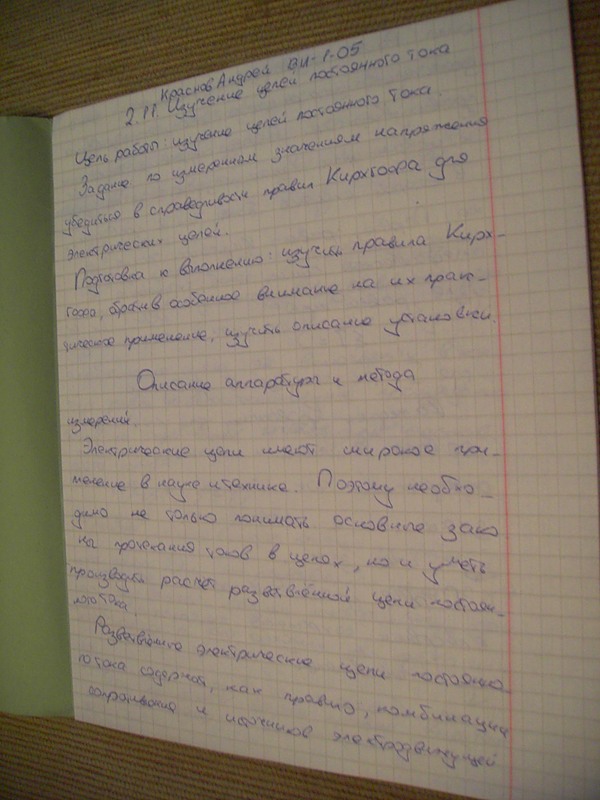 Краснов Андрей ВИ-1-05
2.11. Изучение цепей постоянного тока
Цель работы: изучение цепей постоянного тока.
Задание: по измеренном значениям напряжения
убедиться в справедливости правил Кирхгофа для
электрических цепей.
Подготовка к выполнению: изучить правила Кирх-
гофа, обратив особенное внимание на их прак-
тическое применение, изучить описание установки.
Описание аппаратуры и метода
измерений.
Электрические цепи имеют широкое при-
менение в науке и технике. Поэтому необхо-
димо не только понимать основные зако
ны протекания токов в цепях, но и уметь
производить расчёт разветвлённой цепи постоян-
ного тока
Разветвлённые электрические цепи постоянно
го тока содержат, как правило, комбинации
сопротивления и источников электродвижущей